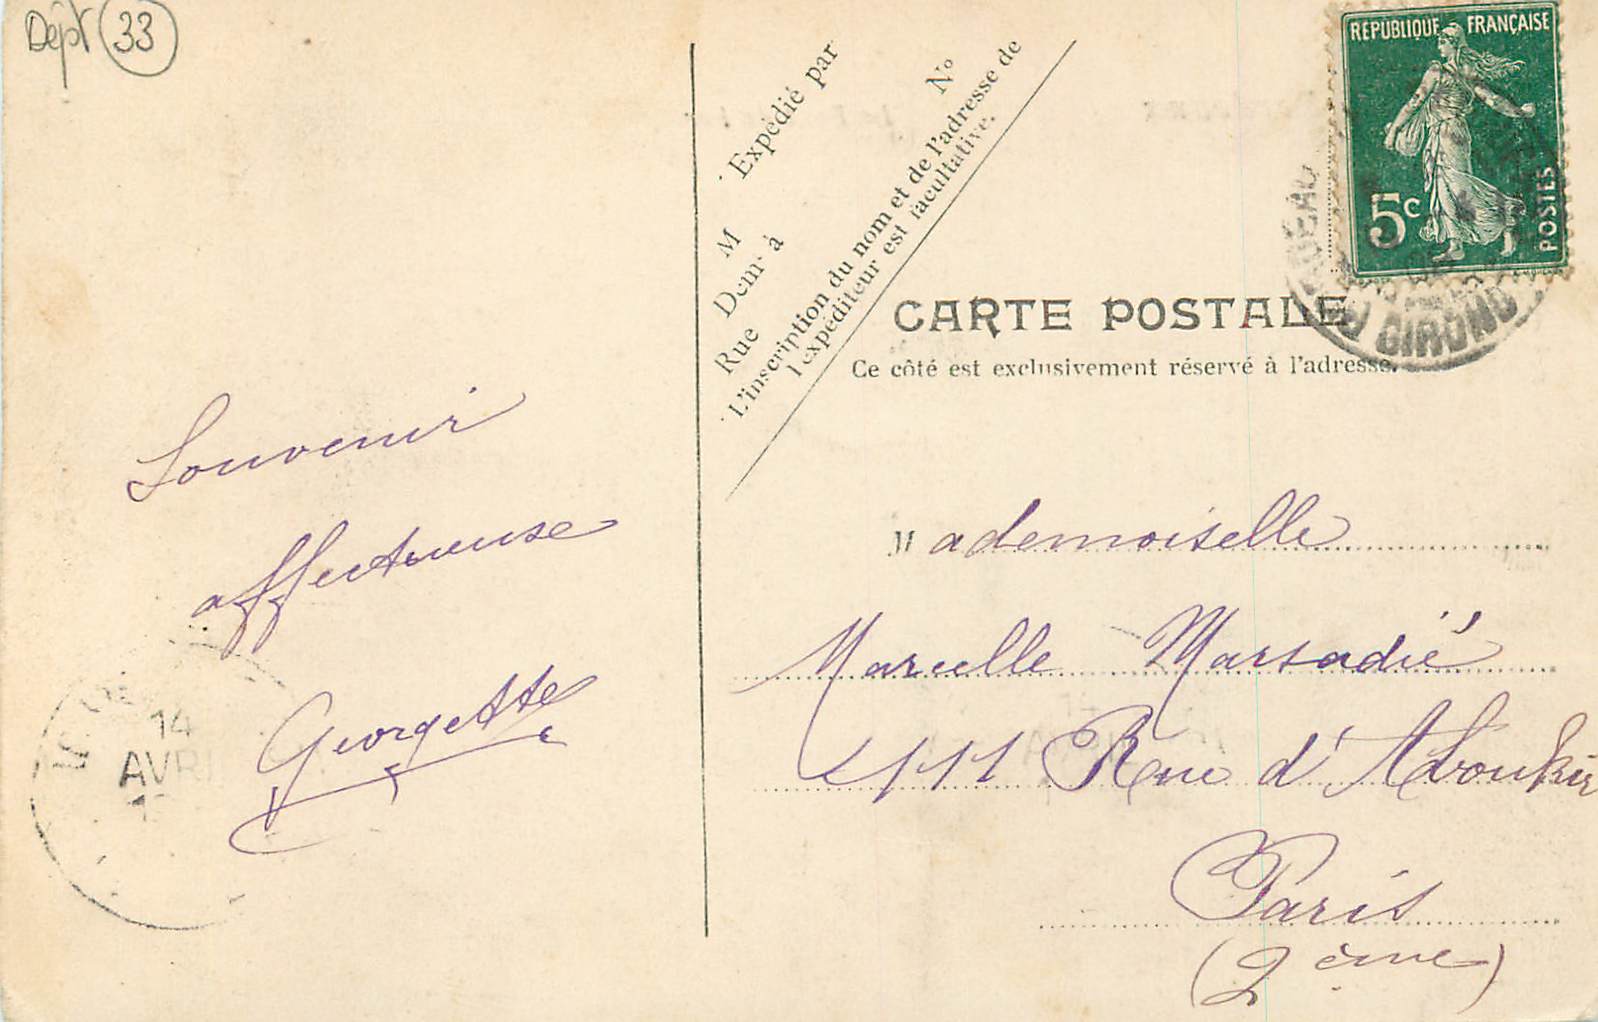 Dépt 33
Expédié par
M
Demt à
Rue
N°
L'inscription du nom et de l'adresse de
l'expéditeur est facultative.
RÉPUBLIQUE FRANÇAISE
5c
POSTES
GIRONDE
CARTE POSTALE
Ce côté est exclusivement réservé à l'adresse.
Souvenir
affectueuse
Georgette
14
AVRI
Mademoiselle
Marcelle Marsadié
111 Rue d'Aboukir
Paris
(2ème)